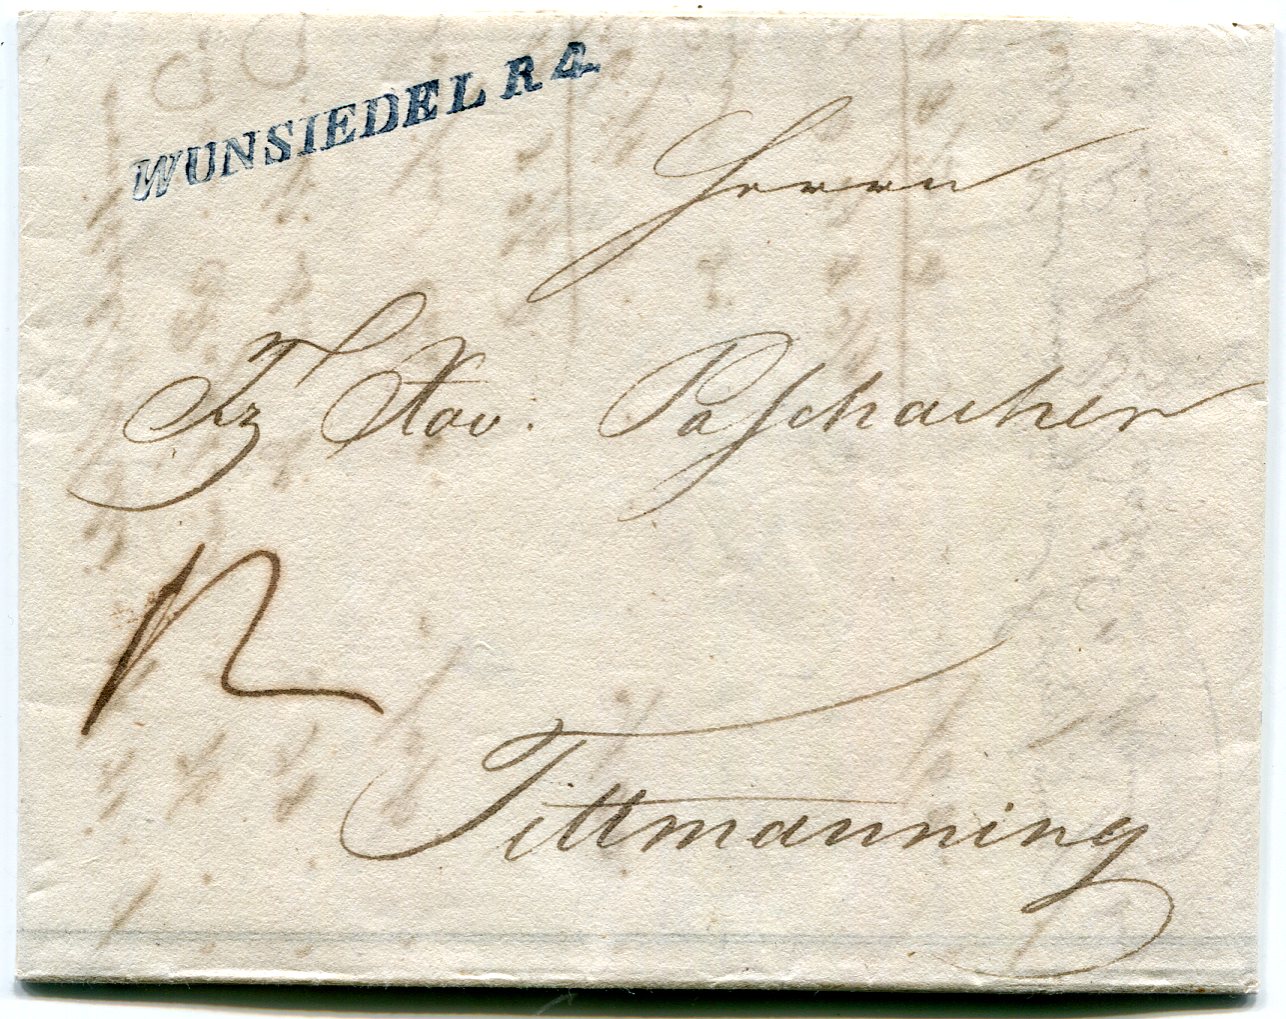 WUNSIEDEL R 4.
Herrn
Fz Xav. Paschacher
12
Tittmanning